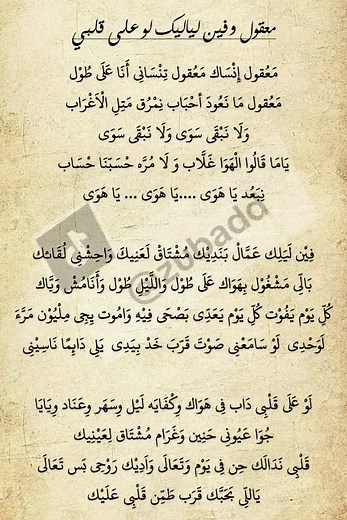 معقول وفين لياليك لو على قلبي
مَعْقول إِنْسَاك مَعْقول تِنْسَانِي أَنَا عَلَى طُوْل
مَعْقول مَا نَعُود أَحْبَاب نِمْرُق مَتِلِ الْاَغْرَاب
وَلَا نَبْقَى سَوَى وَلَا نَبْقَى سَوَى
يَامَا قَالُوا الْهَوَا غَلَّاب وَ لَا مُرَّه حَسَبَنَا حْسَاب
نِبَعُد يَا هَوَى ....يَا هَوَى ... يَا هَوَى
فِيْن لَيَلِك عَمَّال بَنَدِيْك مُشْتَاقْ لَعَنِيَك وَاحِشْنِي لُقَائِك
بَالِي مَشْغُوْل بِهَوَاك عَلَى طُوْل وَاللَّيْل طُوْل وَأَنَامُش وَيَّاك
كُلِّ يَوْم يَفُوْت كُلِّ يَوْم يَعَدِى بَصْحَى فِيْهِ وَامُوت يِجِى مِلْيُوْن مَرَّه
لَوَحْدِى لَوْ سَامَعْنِى صَوْتَ قَرَبَ خَدْ بِيَدِى يَلِي دَايِمًا نَاسِيْنِي
لَوْ عَلَى قَلْبِى دَاب فِى هَوَاك وَكْفَايَه لَيْل وِسَهَر وِعَنَاد وِيَايَا
جُوَا عَيُونِى حَنِين وَغَرَام مُشْتَاق لِعَيْنِيك
قَلْبِى نَدَالَك حِن فِى يَوْم وَتَعَالَى وَاَدِيْك رَوْحِى بَس تَعَالَى
يَاللِّي بَحَبَّك قَرَب طَمِّن قَلْبِى عَلَيْك
@zubadd